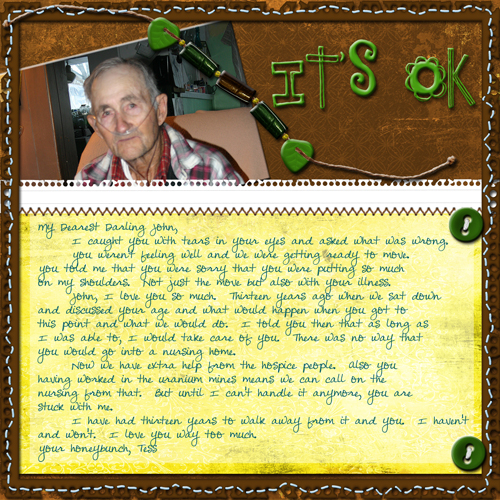 IT'S OK
My Dearest Darling John,
I caught you with tears in your eyes and asked what was wrong.
you weren't feeling well and we were getting ready to move.
you told me that you were sorry that you were putting so much
on my shoulders. Not just the move but also with your illness.
John, I love you so much. Thirteen years ago when we sat down
and discussed your age and what would happen when you got to
this point and what we would do. I told you then that as long as
I was able to, I would take care of you. There was no way that
you would go into a nursing home.
Now we have extra help from the hospice people. Also you
having worked in the uranium mines means we can call on the
nursing from that. But until I can't handle it anymore, you are
stuck with me.
I have had thirteen years to walk away from it and you. I haven't
and won't. I love you way too much.
your honeybunch, Tess